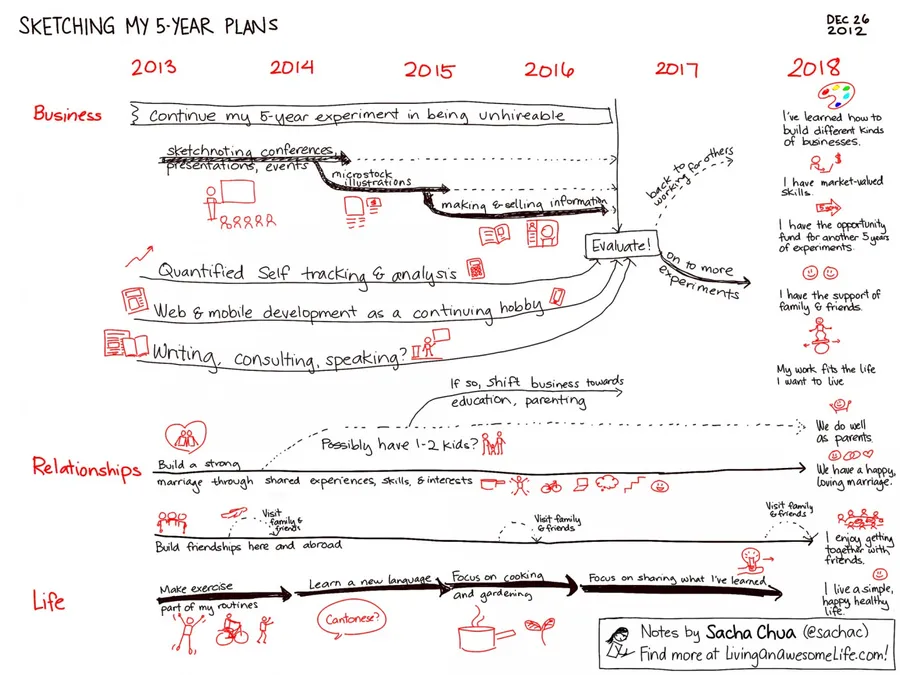 SKETCHING MY 5-YEAR PLANS
DEC 26
2012
2013 2014 2015 2016 2017 2018
Business
Continue my 5-year experiment in being unhireable
sketchnoting conferences,
presentations, events
microstock
illustrations
making & selling information
Evaluate!
back to
working for others
on to more
experiments
Quantified Self tracking & analysis
Web & mobile development as a continuing hobby
Writing, consulting, speaking?
I've learned how to
build different kinds
of businesses.
$
I have market-valued
skills.
I have the opportunity
fund for another 5 years
of experiments.
I have the support of
family & friends.
My work fits the life
I want to live
If so, shift business towards
education, parenting
Possibly have 1-2 kids?
We do well
as parents.
Relationships
Build a strong
marriage through shared experiences, skills, & interests
We have a happy,
loving marriage.
Visit
family &
friends
Visit family
& friends
Visit family
& friends
Build friendships here and abroad
I enjoy getting
together with
friends.
Life
Make exercise
part of my routines
Learn a new language
Cantonese?
Focus on cooking
and gardening
Focus on sharing what I've learned
I live a simple,
happy healthy
life.
Notes by Sacha Chua (@sachac)
Find more at LivingAnAwesomeLife.com!